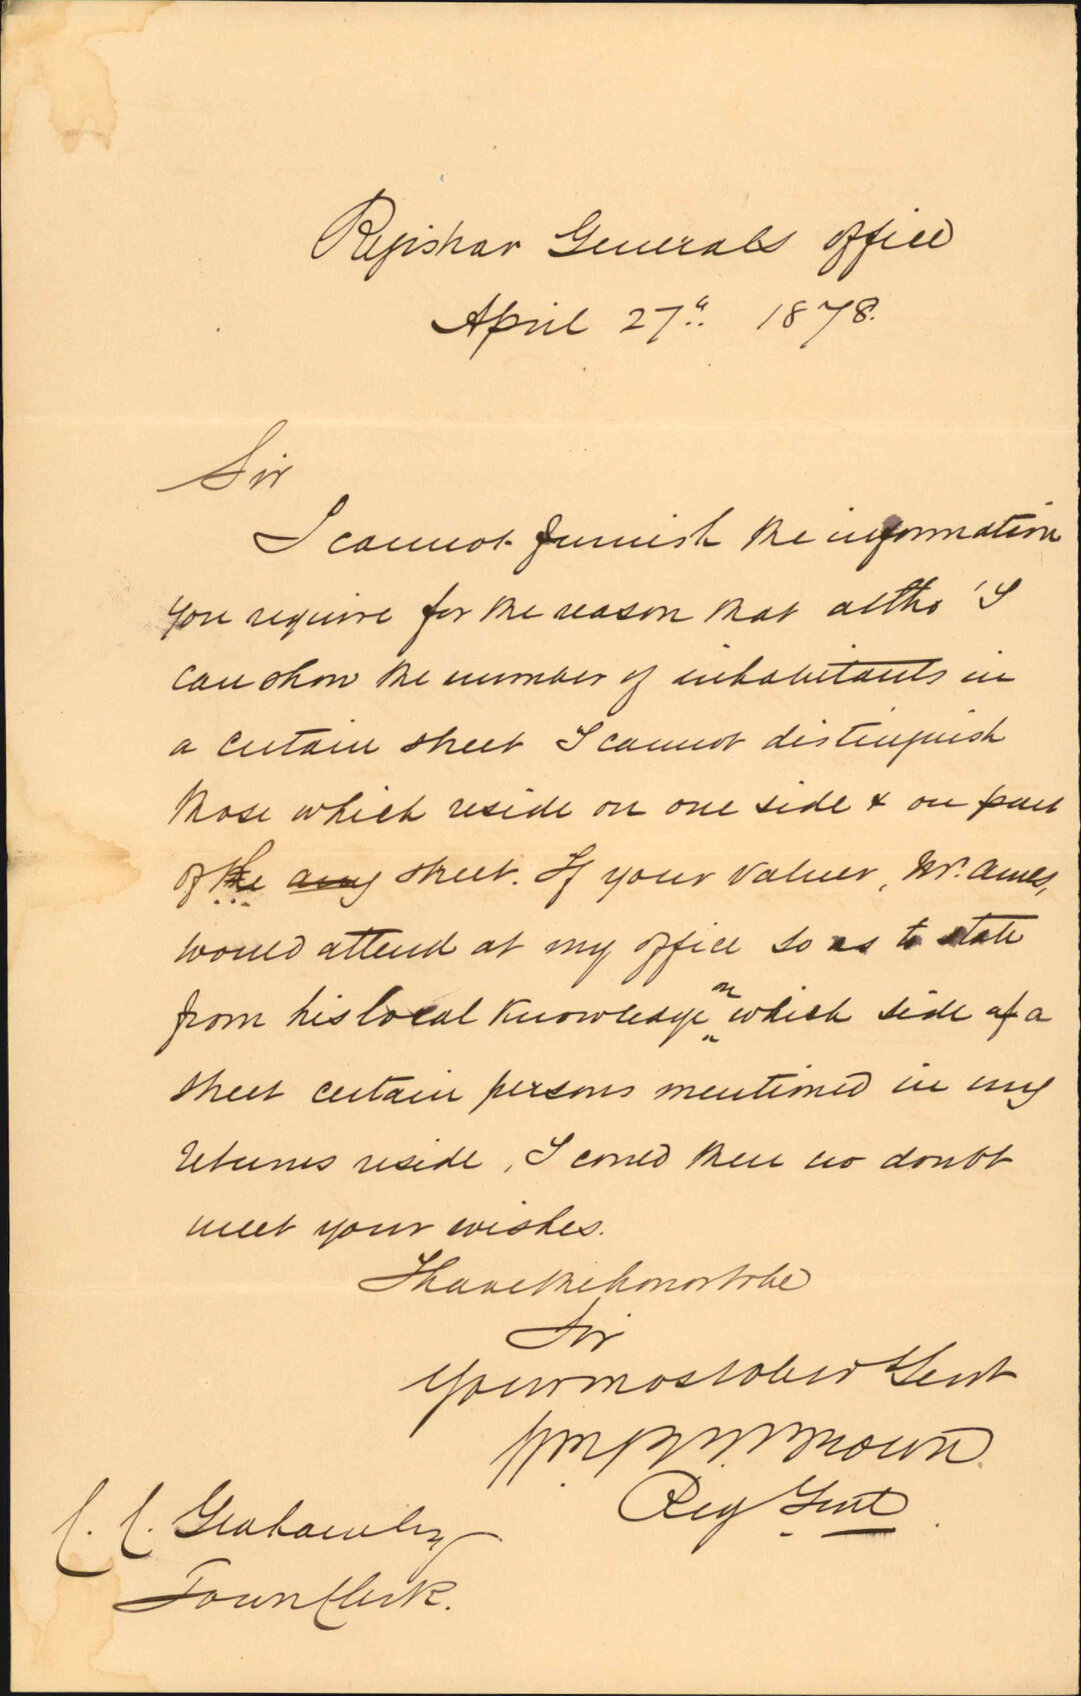 Registrar Generals Office
April 27th 1878.
Sir
I cannot furnish the information
you require for the reason that altho' I
can show the number of inhabitants in
a certain street I cannot distinguish
those which reside on one side & on part
of the any street. If your Valuer, Mr. Ames,
would attend at my office so as to state
from his local knowledge on which side of a
street certain persons mentioned in my
returns reside, I could then no doubt
meet your wishes.
I have the honor to be
Sir
Your most obedt Servt
Wm R. E. Brown
Reg Genl
C. C. Graham Esq
Town Clerk.